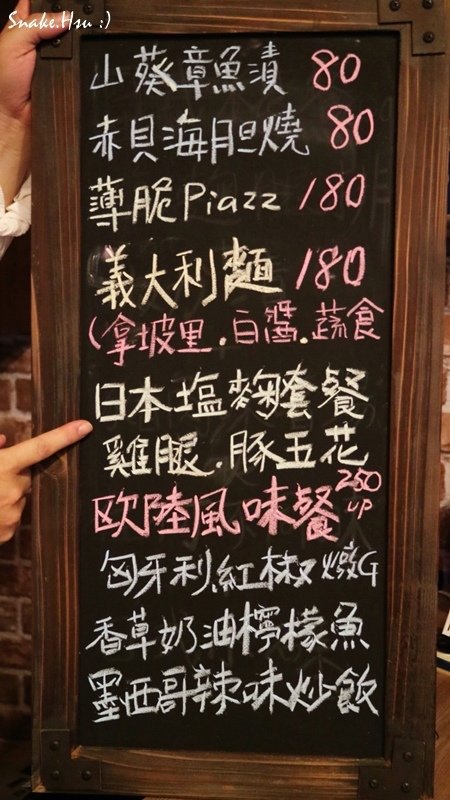 Snake.Hsu :)
山葵章魚漬 80
赤貝海胆燒 80
薄脆Piazz 180
義大利麵 180
(拿坡里.白醬.蔬食
日本塩麴套餐
雞腿.豚五花
欧陸風味餐 250 UP
匈牙利紅椒燉G
香草奶油檸檬魚
墨西哥辣味炒飯